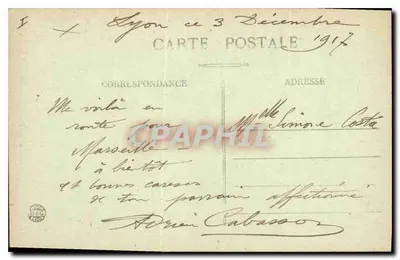 I
Lyon ce 3 Décembre
1917
CARTE POSTALE
CORRESPONDANCE
ADRESSE
Me voilà en
route pour
Marseille
à bientôt
et bonnes caresses
de ton parrain affectionné
Adrien Cabasson
Mlle Simone Costa
CPARPHIL